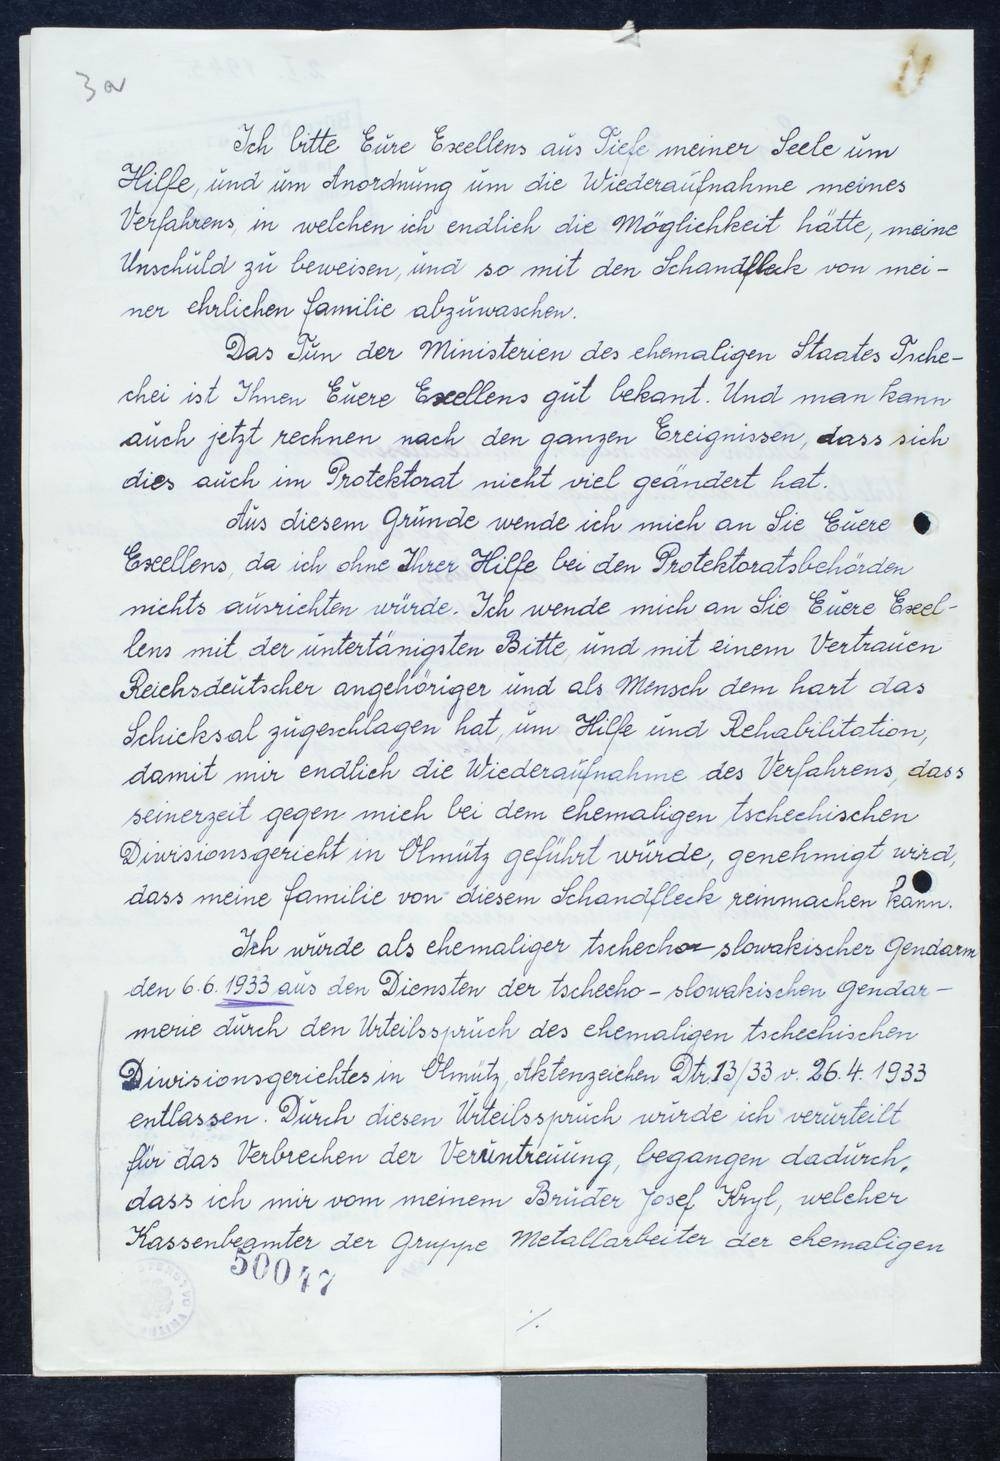 3a
Ich bitte Eure Exellens aus Tiefe meiner Seele um
Hilfe, und um Anordnung um die Wiederaufnahme meines
Verfahrens, in welchen ich endlich die Möglichkeit hätte, meine
Unschuld zu beweisen, und so mit den Schandfleck von mei-
ner ehrlichen familie abzuwaschen.
Das Tun der Ministerien des ehemaligen Staates Tsche-
chei ist Ihnen Euere Exellens gut bekant. Und man kann
auch jetzt rechnen nach den ganzen Ereignissen, dass sich
dies auch im Protektorat nicht viel geändert hat.
Aus diesem Grunde wende ich mich an Sie Euere
Exellens, da ich ohne Ihrer Hilfe bei den Protektoratsbehörden
nichts ausrichten würde. Ich wende mich an Sie Euere Exel-
lens mit der untertänigsten Bitte, und mit einem Vertrauen
Reichsdeutscher angehöriger und als Mensch dem hart das
Schicksal zugeschlagen hat, um Hilfe und Rehabilitation,
damit mir endlich die Wiederaufnahme des Verfahrens, dass
seinerzeit gegen mich bei dem ehemaligen tschechischen
Diwisionsgericht in Olmütz geführt wurde, genehmigt wird,
dass meine familie von diesem Schandfleck reinmachen kann.
Ich wurde als ehemaliger tschecho-slowakischer Gendarm
den 6.6. 1933 aus den Diensten der tschecho-slowakischen Gendar-
merie durch den Urteilsspruch des ehemaligen tschechischen
Diwisionsgerichtes in Olmütz, Aktenzeichen Dtr. 13/33 v. 26.4. 1933
entlassen. Durch diesen Urteilsspruch wurde ich verurteilt
für das Verbrechen der Veruntreuung, begangen dadurch,
dass ich mir vom meinem Bruder Josef Kryl, welcher
Kassenbeamter der Gruppe Metallarbeiter der ehemaligen
./.